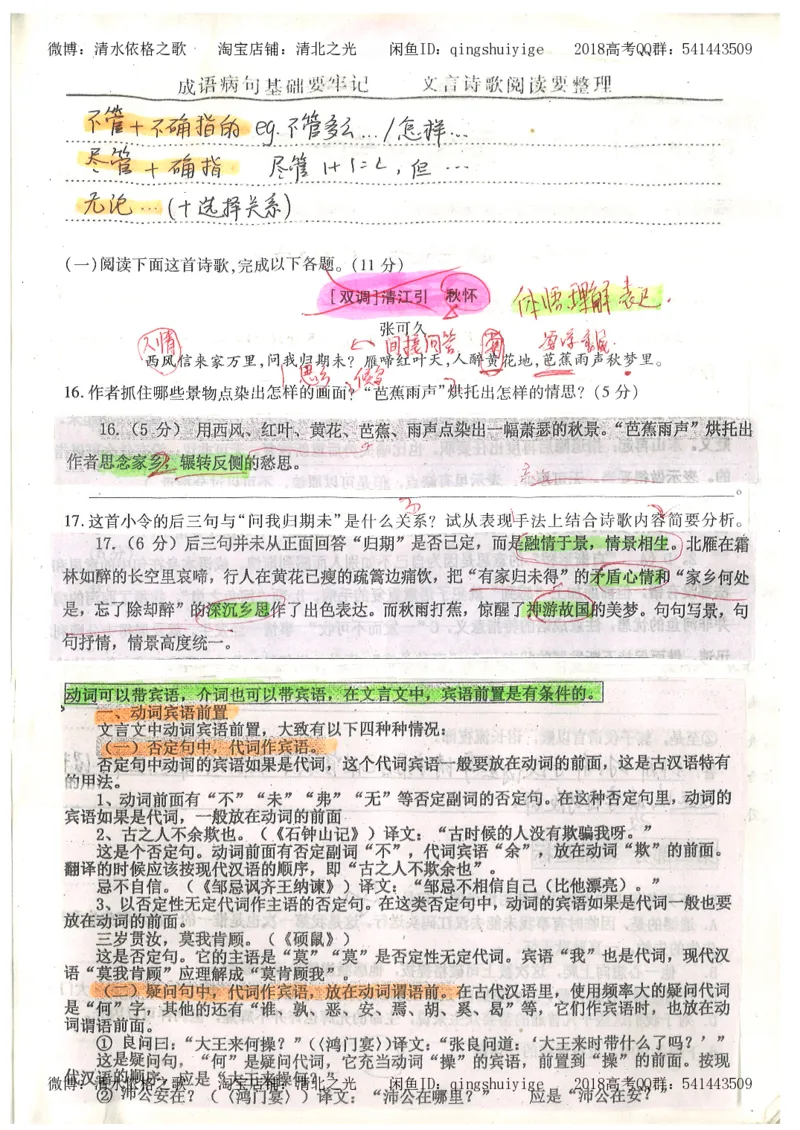 微博：清水依格之歌 淘宝店铺：清北之光 闲鱼ID：qingshuiyige 2018高考QQ群：541443509
成语病句基础要牢记 文言诗歌阅读要整理
不管+不确指的 eg.不管多么…/怎样…
尽管+确指 尽管1+1=2，但…
无论…(+选择关系)
(一)阅读下面这首诗歌,完成以下各题。(11分)
[双调]清江引 秋怀
体悟理解表达.
张可久
人情 间接问答
西风信来家万里,问我归期未?雁啼红叶天,人醉黄花地,芭蕉雨声秋梦里。
16.作者抓住哪些景物点染出怎样的画面?“芭蕉雨声”烘托出怎样的情思?(5分)
16.（5分）用西风、红叶、黄花、芭蕉、雨声点染出一幅萧瑟的秋景。“芭蕉雨声”烘托出
作者思念家乡、辗转反侧的愁思。
17.这首小令的后三句与“问我归期未”是什么关系?试从表现手法上结合诗歌内容简要分析。
17.（6分）后三句并未从正面回答“归期”是否已定，而是融情于景，情景相生。北雁在霜
林如醉的长空里哀啼，行人在黄花已瘦的疏篱边痛饮，把“有家归未得”的矛盾心情和“家乡何处
是，忘了除却醉”的深沉乡思作了出色表达。而秋雨打蕉，惊醒了神游故国的美梦。句句写景，句
句抒情，情景高度统一。
动词可以带宾语，介词也可以带宾语，在文言文中，宾语前置是有条件的。
一、动词宾语前置
文言文中动词宾语前置，大致有以下四种种情况：
（一）否定句中，代词作宾语。
否定句中动词的宾语如果是代词，这个代词宾语一般要放在动词的前面，这是古汉语特有
的用法。
1、动词前面有“不”“未”“弗”“无”等否定副词的否定句。在这种否定句里，动词的
宾语如果是代词，一般放在动词的前面
2、古之人不余欺也。（《石钟山记》）译文：“古时候的人没有欺骗我呀。”
这是个否定句。动词前面有否定副词“不”，代词宾语“余”，放在动词“欺”的前面。
翻译的时候应该按现代汉语的顺序，即“古之人不欺余也”。
忌不自信。（《邹忌讽齐王纳谏》）译文：“邹忌不相信自己（比他漂亮）。”
3、以否定性无定代词作主语的否定句。在这类否定句中，动词的宾语如果是代词一般也要
放在动词的前面。
三岁贯汝，莫我肯顾。（《硕鼠》）
这是否定句。它的主语是“莫”“莫”是否定性无定代词。宾语“我”也是代词，现代汉
语“莫我肯顾”应理解成“莫肯顾我”。
（二）疑问句中，代词作宾语，放在动词谓语前。在古代汉语里，使用频率大的疑问代词
是“何”字，其他的还有“谁、孰、恶、安、焉、胡、奚、曷”等，它们作宾语时，也放在动
词谓语前面。
① 良问曰：“大王来何操？”（《鸿门宴》）译文：“张良问道：‘大王来时带什么了吗？’”
这是疑问句，“何”是疑问代词，它充当动词“操”的宾语，前置到“操”的前面。按现
代汉语的顺序，应是“大王来操何？”
微博：清水依格之歌 淘宝店铺：清北之光 闲鱼ID：qingshuiyige 2018高考QQ群：541443509
② 沛公安在？（《鸿门宴》）译文：“沛公在哪里？” 应是“沛公在安？”